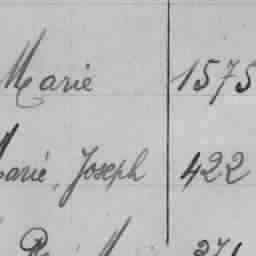 Marie 1575
Marie, Joseph 422